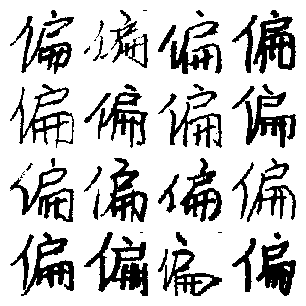 偏偏偏偏
偏偏偏偏
偏偏偏偏
偏偏偏偏